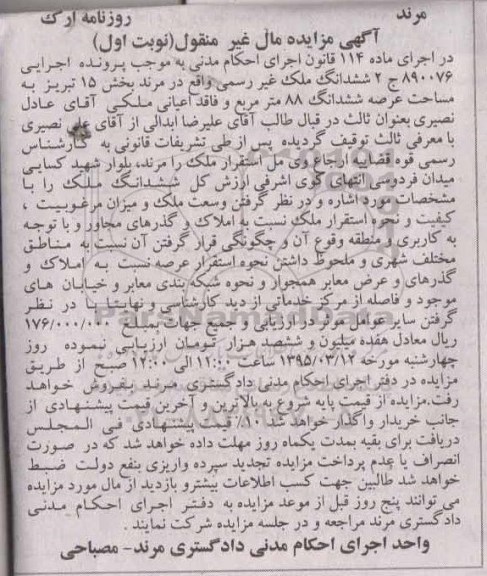 مرند
روزنامه ارک
آگهی مزایده مال غیر منقول(نوبت اول)
در اجرای ماده ۱۱۴ قانون اجرای احکام مدنی به موجب پرونده اجرایی
۸۹۰۰۷۶ ج ۲ ششدانگ ملک غیر رسمی واقع در مرند بخش ۱۵ تبریز به
مساحت عرصه ششدانگ ۸۸ متر مربع و فاقد اعیانی ملکی آقای عادل
نصیری بعنوان ثالث در قبال طالب آقای علیرضا ابدالی از آقای علی نصیری
با معرفی ثالث توقیف گردیده پس از طی تشریفات قانونی به کارشناس
رسمی قوه قضاییه ارجاع وی مل استقرار ملک را مرند، بلوار شهید کسایی
میدان فردوسی انتهای کوی اشرفی ارزش کل ششدانگ ملک را با
مشخصات مورد اشاره و در نظر گرفتن وسعت ملک و میزان مرغوبیت ،
کیفیت و نحوه استقرار ملک نسبت به املاک و گذرهای مجاور و با توجه
به کاربری و منطقه وقوع آن و چگونگی قرار گرفتن آن نسبت به مناطق
مختلف شهری و ملحوظ داشتن نحوه استقرار عرصه نسبت به املاک و
گذرهای و عرض معابر همجوار و نحوه شبکه بندی معابر و خیابان های
موجود و فاصله از مرکز خدماتی از دید کارشناسی و نهایتا با در نظر
گرفتن سایر عوامل موثر در ارزیابی و جمیع جهات بمبلغ ۱۷۶/۰۰۰/۰۰۰
ریال معادل هفده میلیون و ششصد هزار تومان ارزیابی نیموده روز
چهارشنبه مورخه ۱۳۹۵/۰۳/۱۲ ساعت ۱۱:۰۰ الی ۱۲:۰۰ صبح از طریق
مزایده در دفتر اجرای احکام مدنی دادگستری مرند بفروش خواهد
رفت.مزایده از قیمت پایه شروع به بالاترین و آخرین قیمت پیشنهادی از
جانب خریدار واگذار خواهد شد ۱۰٪ قیمت پیشنهادی فی المجلس
دریافت برای بقیه بمدت یکماه روز مهلت داده خواهد شد که در صورت
انصراف یا عدم پرداخت مزایده تجدید سپرده واریزی بنفع دولت ضبط
خواهد شد طالبین جهت کسب اطلاعات بیشترو بازدید از مال مورد مزایده
می توانند پنج روز قبل از موعد مزایده به دفتر اجرای احکام مدنی
دادگستری مرند مراجعه و در جلسه مزایده شرکت نمایند .
واحد اجرای احکام مدنی دادگستری مرند- مصباحی
ParsNamadData